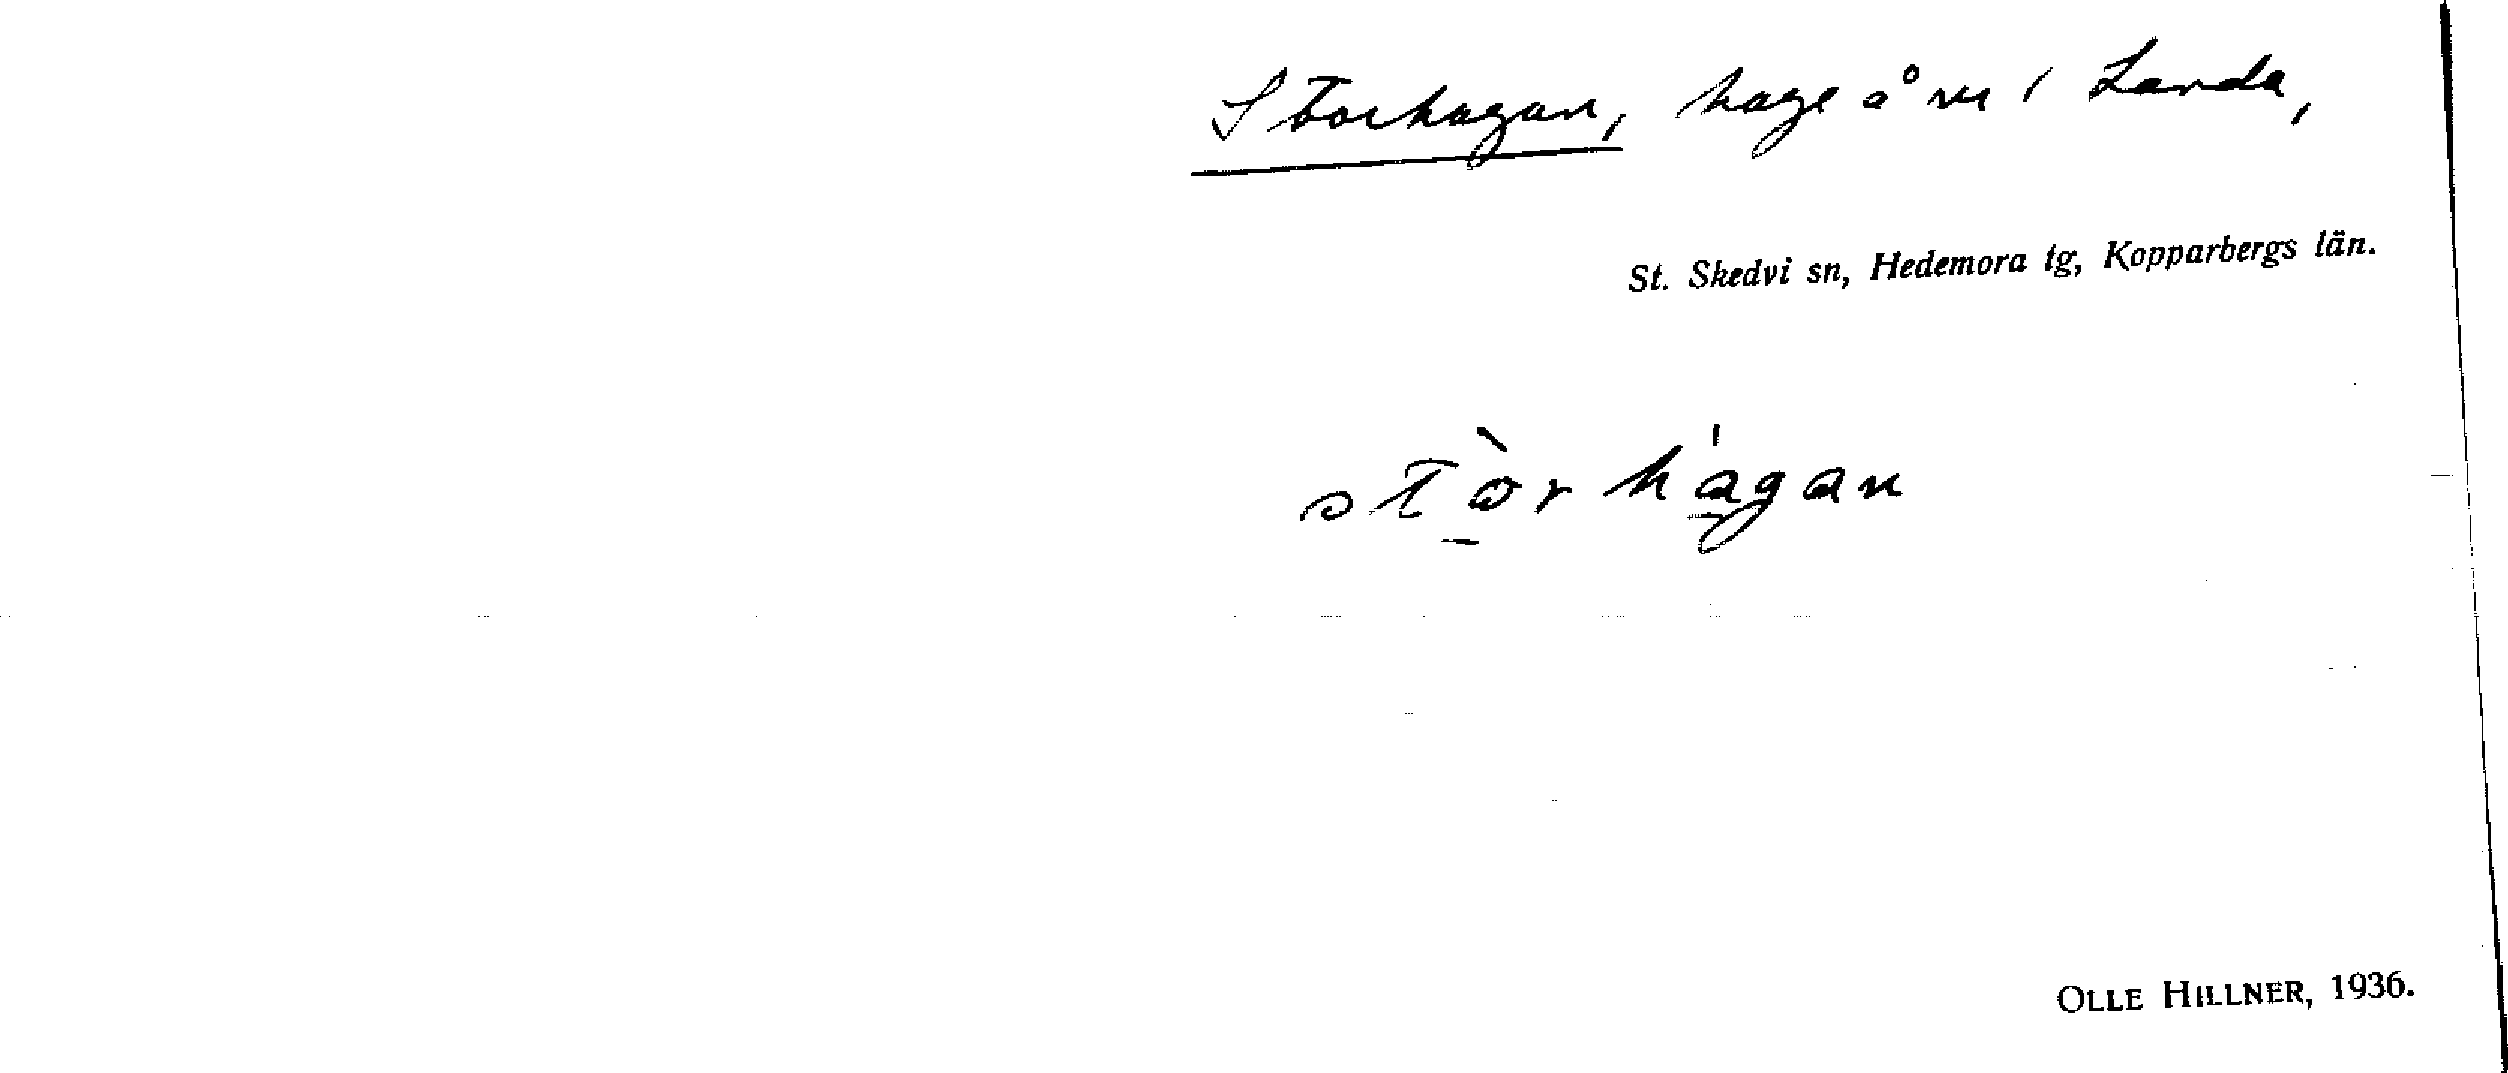 Storhagan, hage å nr 1 Landa,
St. Skedvi sn, Hedemora tg, Kopparbergs län.
stòrhágan
OLLE HILLNER, 1936.